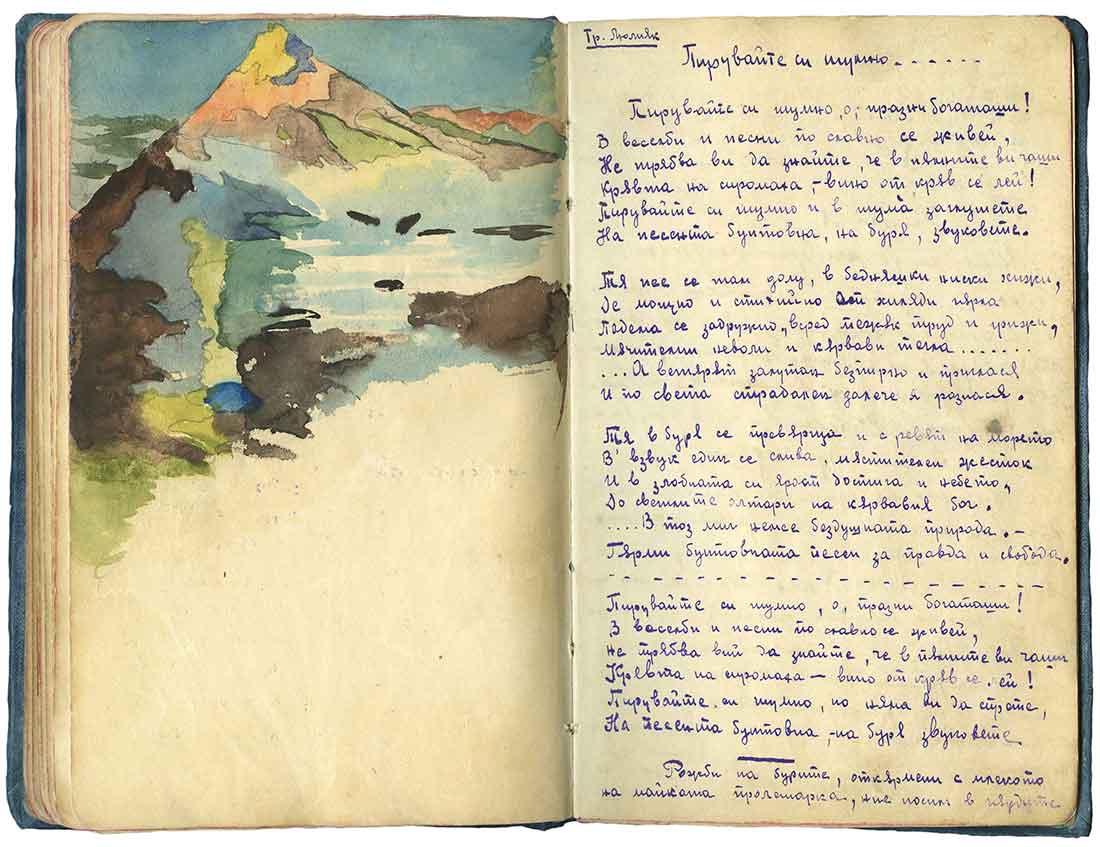 Гр. Люлияк
Пирувайте си шумно......
Пирувайте си шумно, о, празни богаташи!
В веселби и песни по славно се живей,
Не трябва ви да знайте, че в пълните ви чаши
Кръвта на сиромаха, – вино от кръв се лей!
Пирувайте си шумно и в шума заглушете
На песента бунтовна, на буря, звуковете.
Тя пее се там долу, в бедняшки ниски хижи,
Де мощно и стихийно от хиляди гърла
Подема се задружно, всред тежък труд и грижи,
Мъчителни неволи и кървави тегла.......
...А вятърът запътан безгрижно и приглася
И по света страдален далече я разнася.
Тя в буря се превръща и с ревът на морето
В' взвук един се слива, мъстителен жесток
И в злобната си ярост достига и небето,
До светлите олтари на кървавия бог.
....В тоз миг немее бездушната природа. –
Гърми бунтовната песен за правда и свобода.
Пирувайте си шумно, о, празни богаташи!
В веселби и песни по славно се живей,
не трябва вий да знайте, че в пълните ви чаши
Кръвта на сиромаха – вино от кръв се лей!
Пирувайте си шумно, но няма ви да спрете,
На песента бунтовна, – на буря звуковете
Рожби на бурите, откърмени с млекото
на майката пролетарка, ние носим в гърдите